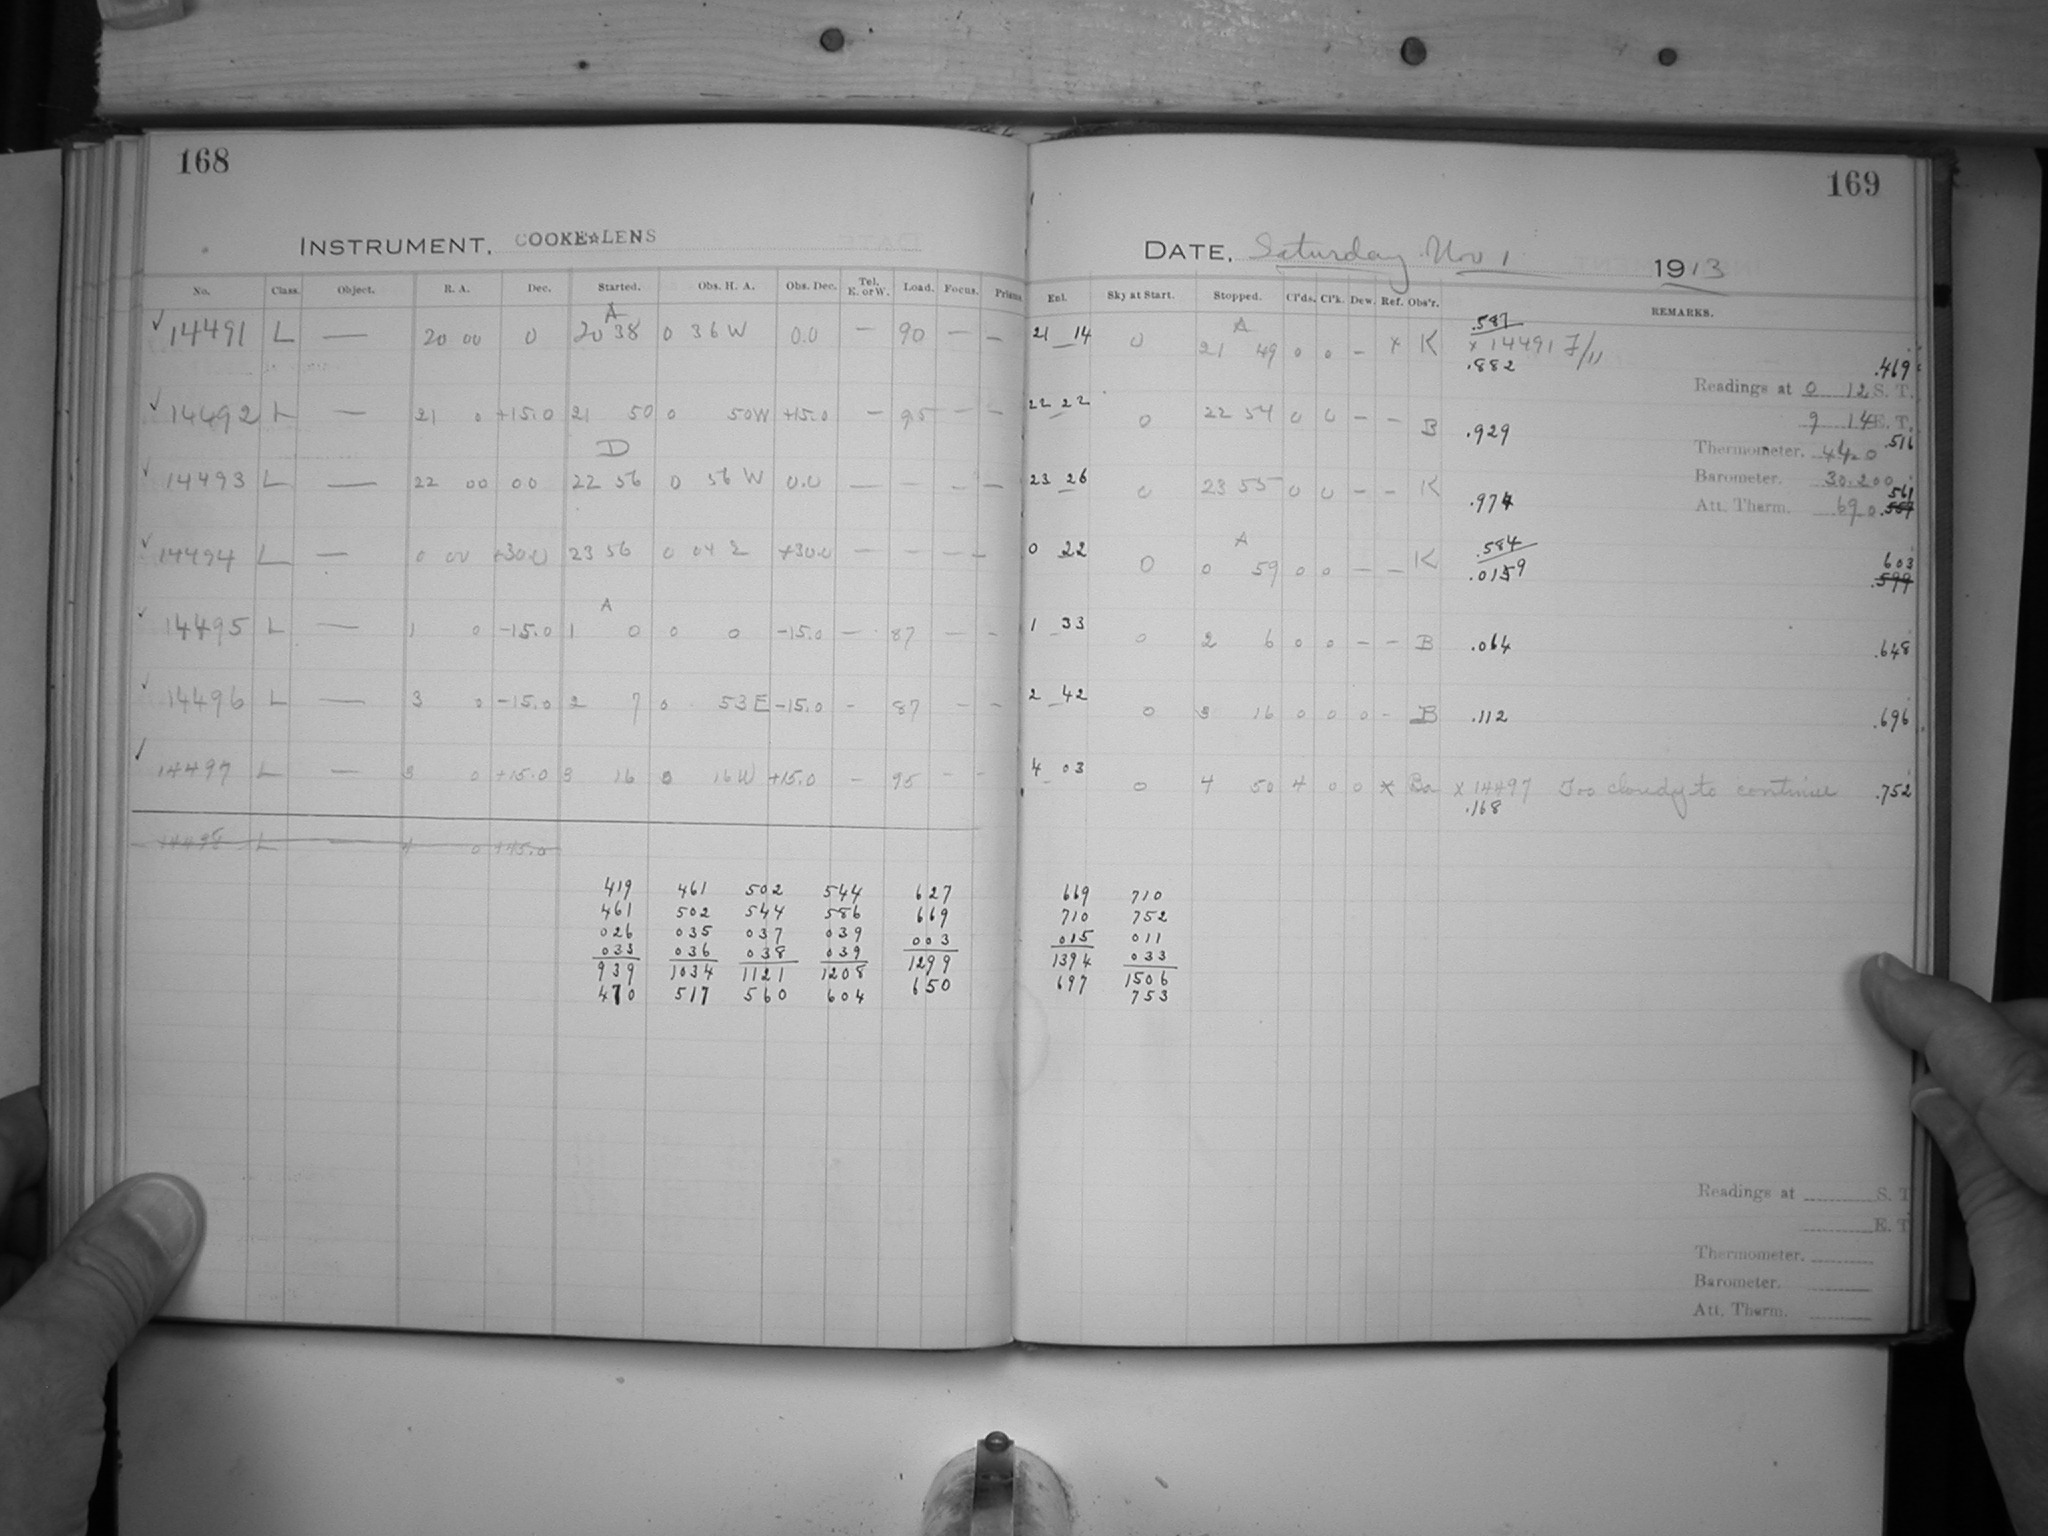 168
INSTRUMENT, COOKE☆LENS
No. Class. Object. R. A. Dec. Started. Obs. H. A. Obs. Dec. Tel. E. or W. Load. Focus. Prisms
A
✓ 14491 L — 20 00 0 20 38 0 36 W 0.0 — 90 — —
✓ 14492 L — 21 0 +15.0 21 50 0 50W +15.0 — 95 — —
D
✓ 14493 L — 22 00 00 22 56 0 56 W 0.0 — — — —
✓ 14494 L — 0 00 +30.0 23 56 0 04 E +30.0 — — — —
A
✓ 14495 L — 1 0 -15.0 1 0 0 0 -15.0 — 87 — —
✓ 14496 L — 3 0 -15.0 2 7 0 53E -15.0 - 87 — —
✓ 14497 L — 3 0 +15.0 3 16 0 16W +15.0 — 95 — -
14498 L — 4 0 +15.0
419 461 502 544 627
461 502 544 586 669
026 035 037 039 003
033 036 038 039
939 1034 1121 1208 1299
470 517 560 604 650
169
DATE, Saturday Nov 1 1913
Enl. Sky at Start. Stopped. Cl'ds. Cl'k. Dew. Ref. Obs'r. REMARKS.
A .587
21 14 0 21 49 0 0 - x K x 14491 F/11
.882 .469
Readings at 0 12 S. T.
22 22 0 22 54 0 0 - - B .929 9 14 E. T.
.516
Thermometer. 44.0
Barometer. 30.200
23 26 0 23 55 0 0 - - K .974 .561
Att. Therm. 69.0 .557
A .584
0 22 0 0 59 0 0 - - K .0159 603
.599
1 33 0 2 6 0 0 - - B .064 .648
2 42 0 3 16 0 0 0 - B .112 .696
4 03 0 4 50 4 0 0 * Ba x 14497 Too cloudy to continue .752
.168
669 710
710 752
015 011
033
1394 1506
697 753
Readings at S. T
E. T
Thermometer.
Barometer.
Att. Therm.